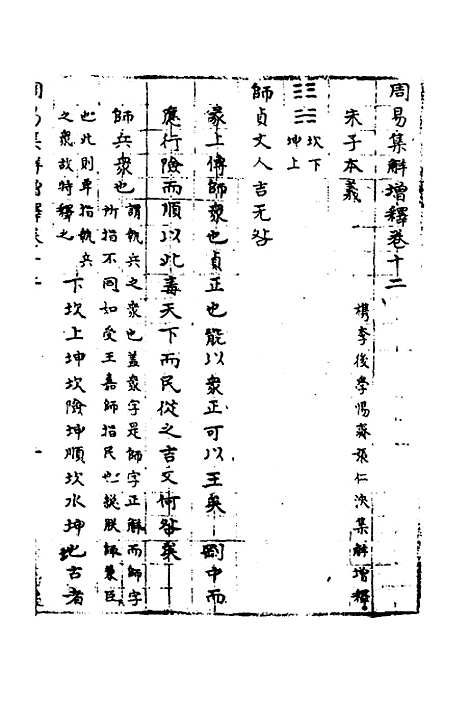 周易集解增釋卷十二
檇李後學惕齋張仁浹集解增釋
朱子本義
坎下
坤上
師貞丈人吉无咎
彖上傳師衆也貞正也能以衆正可以王矣剛中而
應行險而順以此毒天下而民從之吉又何咎矣
師兵衆也
謂執兵之衆也蓋衆字是師字正解而師字
所指不同如受王嘉師指民也從朕師東臣
也此則專指執兵
之衆故特釋之
下坎上坤坎險坤順坎水坤地也古者
周易集解增釋卷十二
一